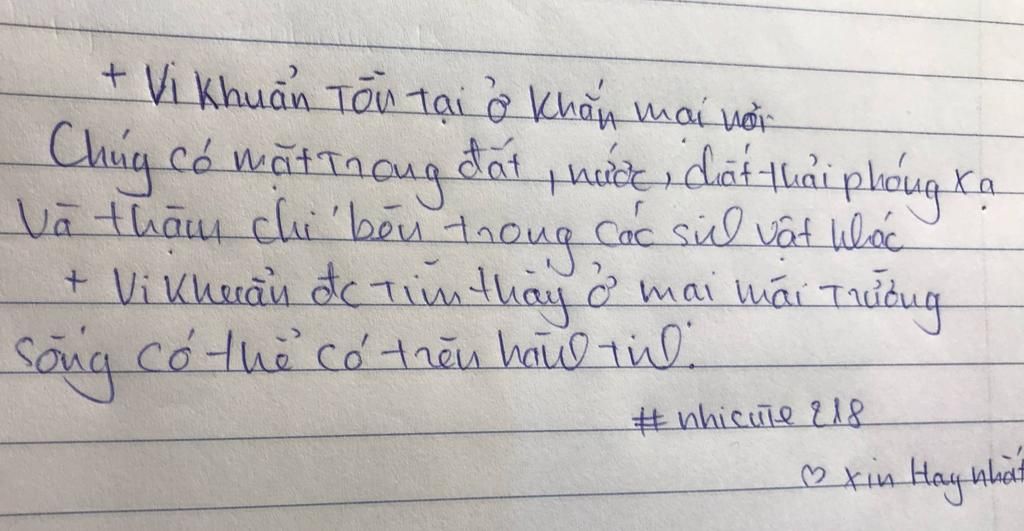 + Vi Khuẩn Tồn tại ở khắn mọi nơi.
Chúg có mặt trong đất, nước, chất thải phóng xạ
Và thậm chí bên trong các sinh vật khác
+ Vi Khuẩn đc Tìm thấy ở mọi môi Trường
sống có thể có trên hành tinh.
# nhicute 218
♡ xin Hay nhất